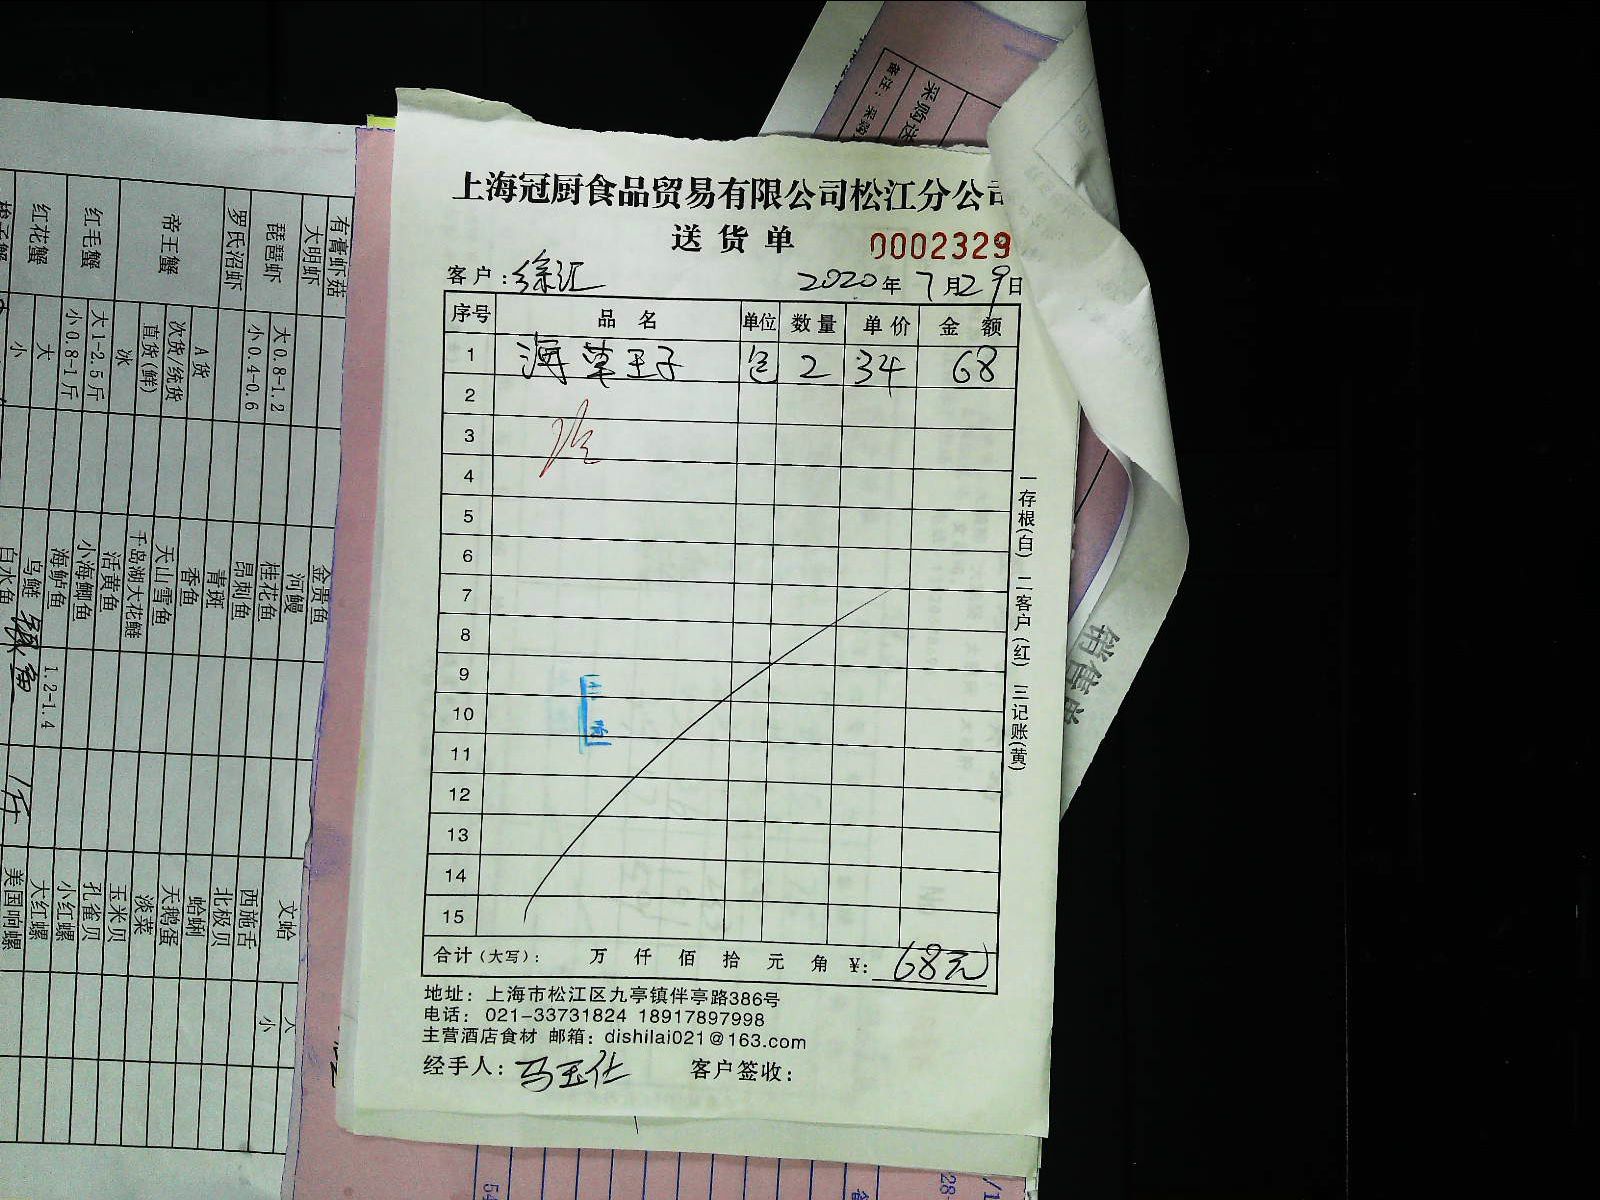 上海冠厨食品贸易有限公司松江分公司
送货单 0002329
客户：徐汇 2020年7月29日
序号 品名 单位 数量 单价 金额
1 海草王子 包 2 34 68
2
3
4
5
6
7
8
9
10
11
12
13
14
15
合计（大写）： 万 仟 佰 拾 元 角 ¥：68元
地址：上海市松江区九亭镇伴亭路386号
电话：021-33731824 18917897998
主营酒店食材 邮箱：dishilai021@163.com
经手人：马玉仕 客户签收：
一存根(白) 二客户(红) 三记账(黄)
采购送
备注：采购
销售单
有膏虾菇
大明虾
琵琶虾 大0.8-1.2
罗氏沼虾 小0.4-0.6
帝王蟹 A货
次货/统货
直货(鲜)
冰
红毛蟹 大1-2.5斤
小0.8-1斤
红花蟹 大
小
梭子蟹
金贵鱼
河鳗
桂花鱼
昂刺鱼
青斑
香鱼
天山雪鱼
千岛湖大花鲢
活黄鱼
小海鲫鱼
海鲈鱼 1.2-1.4
乌鲢
白水鱼
文蛤 大
小
西施舌
北极贝
蛤蜊
天鹅蛋
淡菜
玉米贝
孔雀贝
小红螺
大红螺
美国响螺